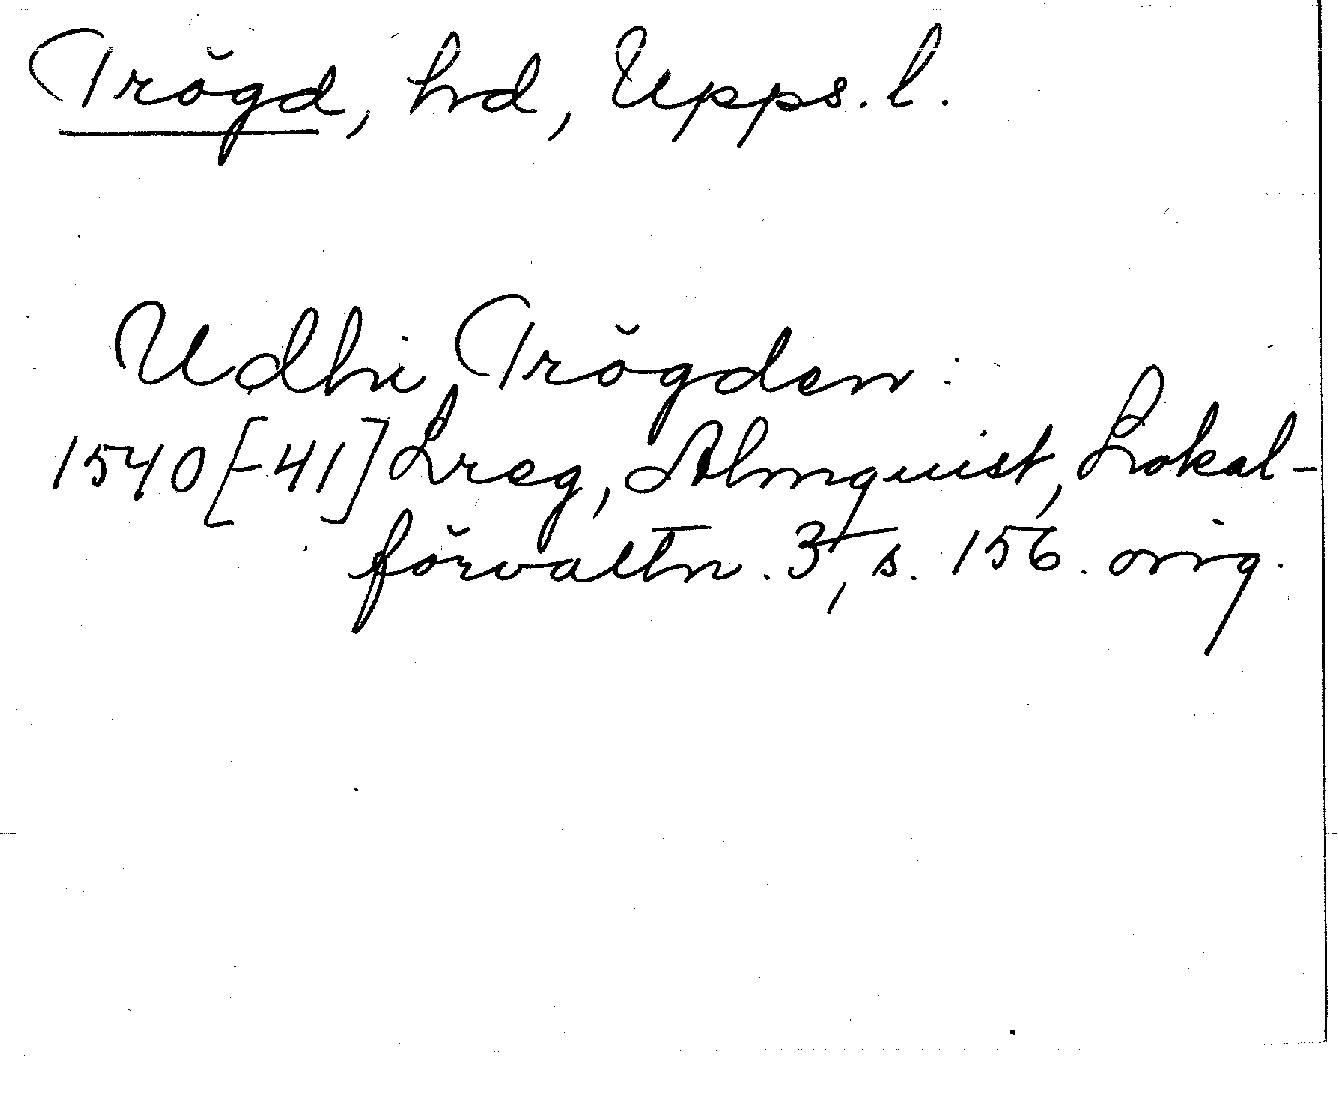 Trögd, hd, Upps. l.
Udhi Trögden :
1540[-41] Lreg, Almquist, Lokal-
förvaltn. 3, s. 156. orig.